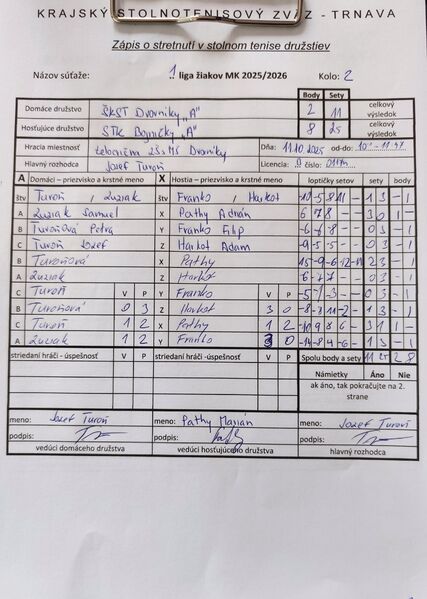 KRAJSKÝ STOLNOTENISOVÝ ZVÄZ - TRNAVA
Zápis o stretnutí v stolnom tenise družstiev
Názov súťaže: 1 liga žiakov MK 2025/2026 Kolo: 2
Body Sety
Domáce družstvo ŠKST Dvorníky "A" 2 11 celkový výsledok
Hosťujúce družstvo STK Bojničky "A" 8 25 celkový výsledok
Hracia miestnosť telocvičňa ZŠ s MŠ Dvorníky Dňa: 11.10.2025 od-do:
Hlavný rozhodca Jozef Turoň Licencia: číslo:
A Domáci – priezvisko a krstné meno X Hostia – priezvisko a krstné meno loptičky setov sety body
štv Turoň, Luziak štv Franko, Harkot 1 3 - 1
A Luziak Samuel X Pathy Adrián 6 7 8 - - 3 0 1 -
B Turoňová Petra Y Franko Filip 0 3 - 1
C Turoň Jozef Z Harkot Adam -9 -5 -5 - - 0 3 - 1
B Turoňová X Pathy 2 3 - 1
A Luziak Z Harkot 0 3 - 1
C Turoň V P Y Franko V P 0 3 - 1
B Turoňová 0 3 Z Harkot 3 0 1 3 - 1
C Turoň 1 2 X Pathy 1 2 -10 9 8 6 - 3 1 1 -
A Luziak 1 2 Y Franko 3 0 -14 -8 4 -6 - 1 3 - 1
striedaní hráči - úspešnosť V P striedaní hráči - úspešnosť V P Spolu body a sety 11 25 2 8
Námietky Áno Nie
ak áno, tak pokračujte na 2. strane
meno: Jozef Turoň meno: Pathy Marián meno: Jozef Turoň
podpis: podpis: podpis:
vedúci domáceho družstva vedúci hosťujúceho družstva hlavný rozhodca